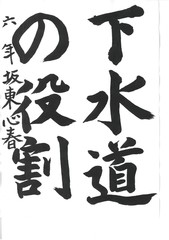 下水道
の役割
六年坂東心春